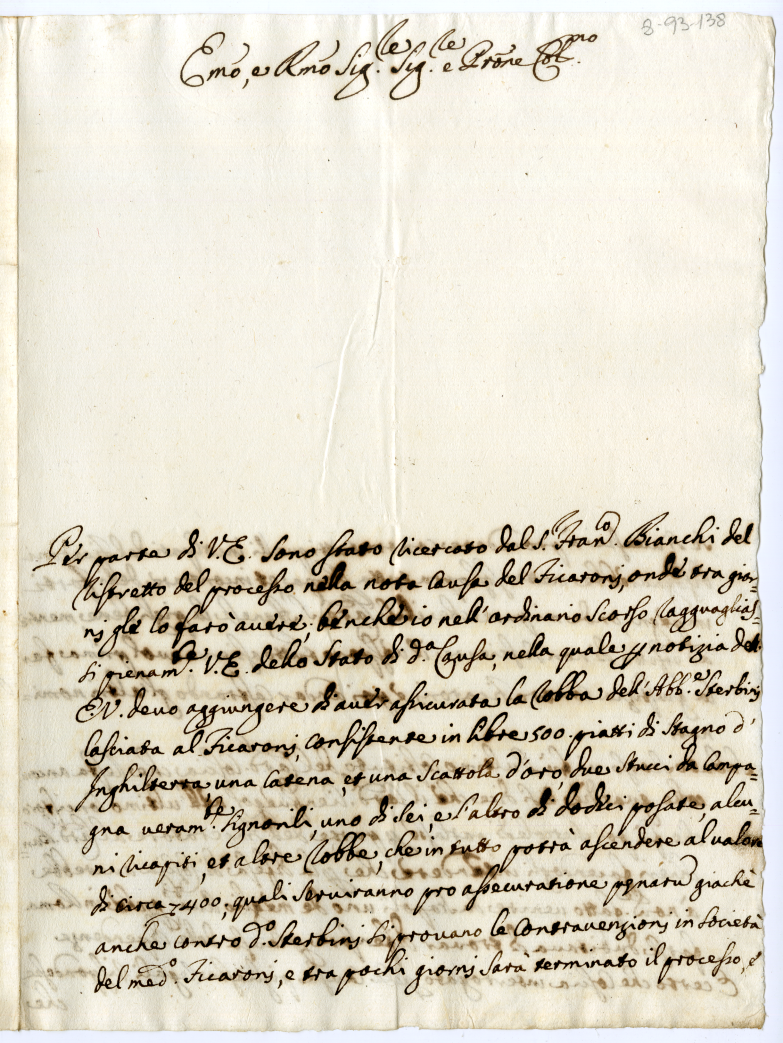 8-93-138
Emo, e Rmo Sig.le Sig.le e Prone Col.mo
Per parte di V.E. sono stato ricercato dal S. Fran.co Bianchi del
ristretto del processo nella nota causa del Ficaroni, onde tra gior=
ni gle lo farò avere; benche io nell'ordinario scorso ragguaglias=
si pienam.te V.E. dello Stato di d.a Causa, nella quale p notizia dell'
E.V. devo aggiungere di aver assicurata la robba dell'Abb.e Sterbini
lasciata al Ficaroni, consistente in libre 500 piatti di Stagno d'
Inghilterra, una Catena, et una Scattola d'oro, due Stucci da Campa=
gna veram.te Signorili, uno di sei, e l'altro di dodici posate, alcu=
ni ricapiti, et altre robbe, che in tutto potrà ascendere al valore
di circa 400; quali serviranno pro assecuratione pgnaru giachè
anche contro d.o Sterbini si provano le contravenzioni in società
del med.o Ficaroni, e tra pochi giorni sarà terminato il processo, e